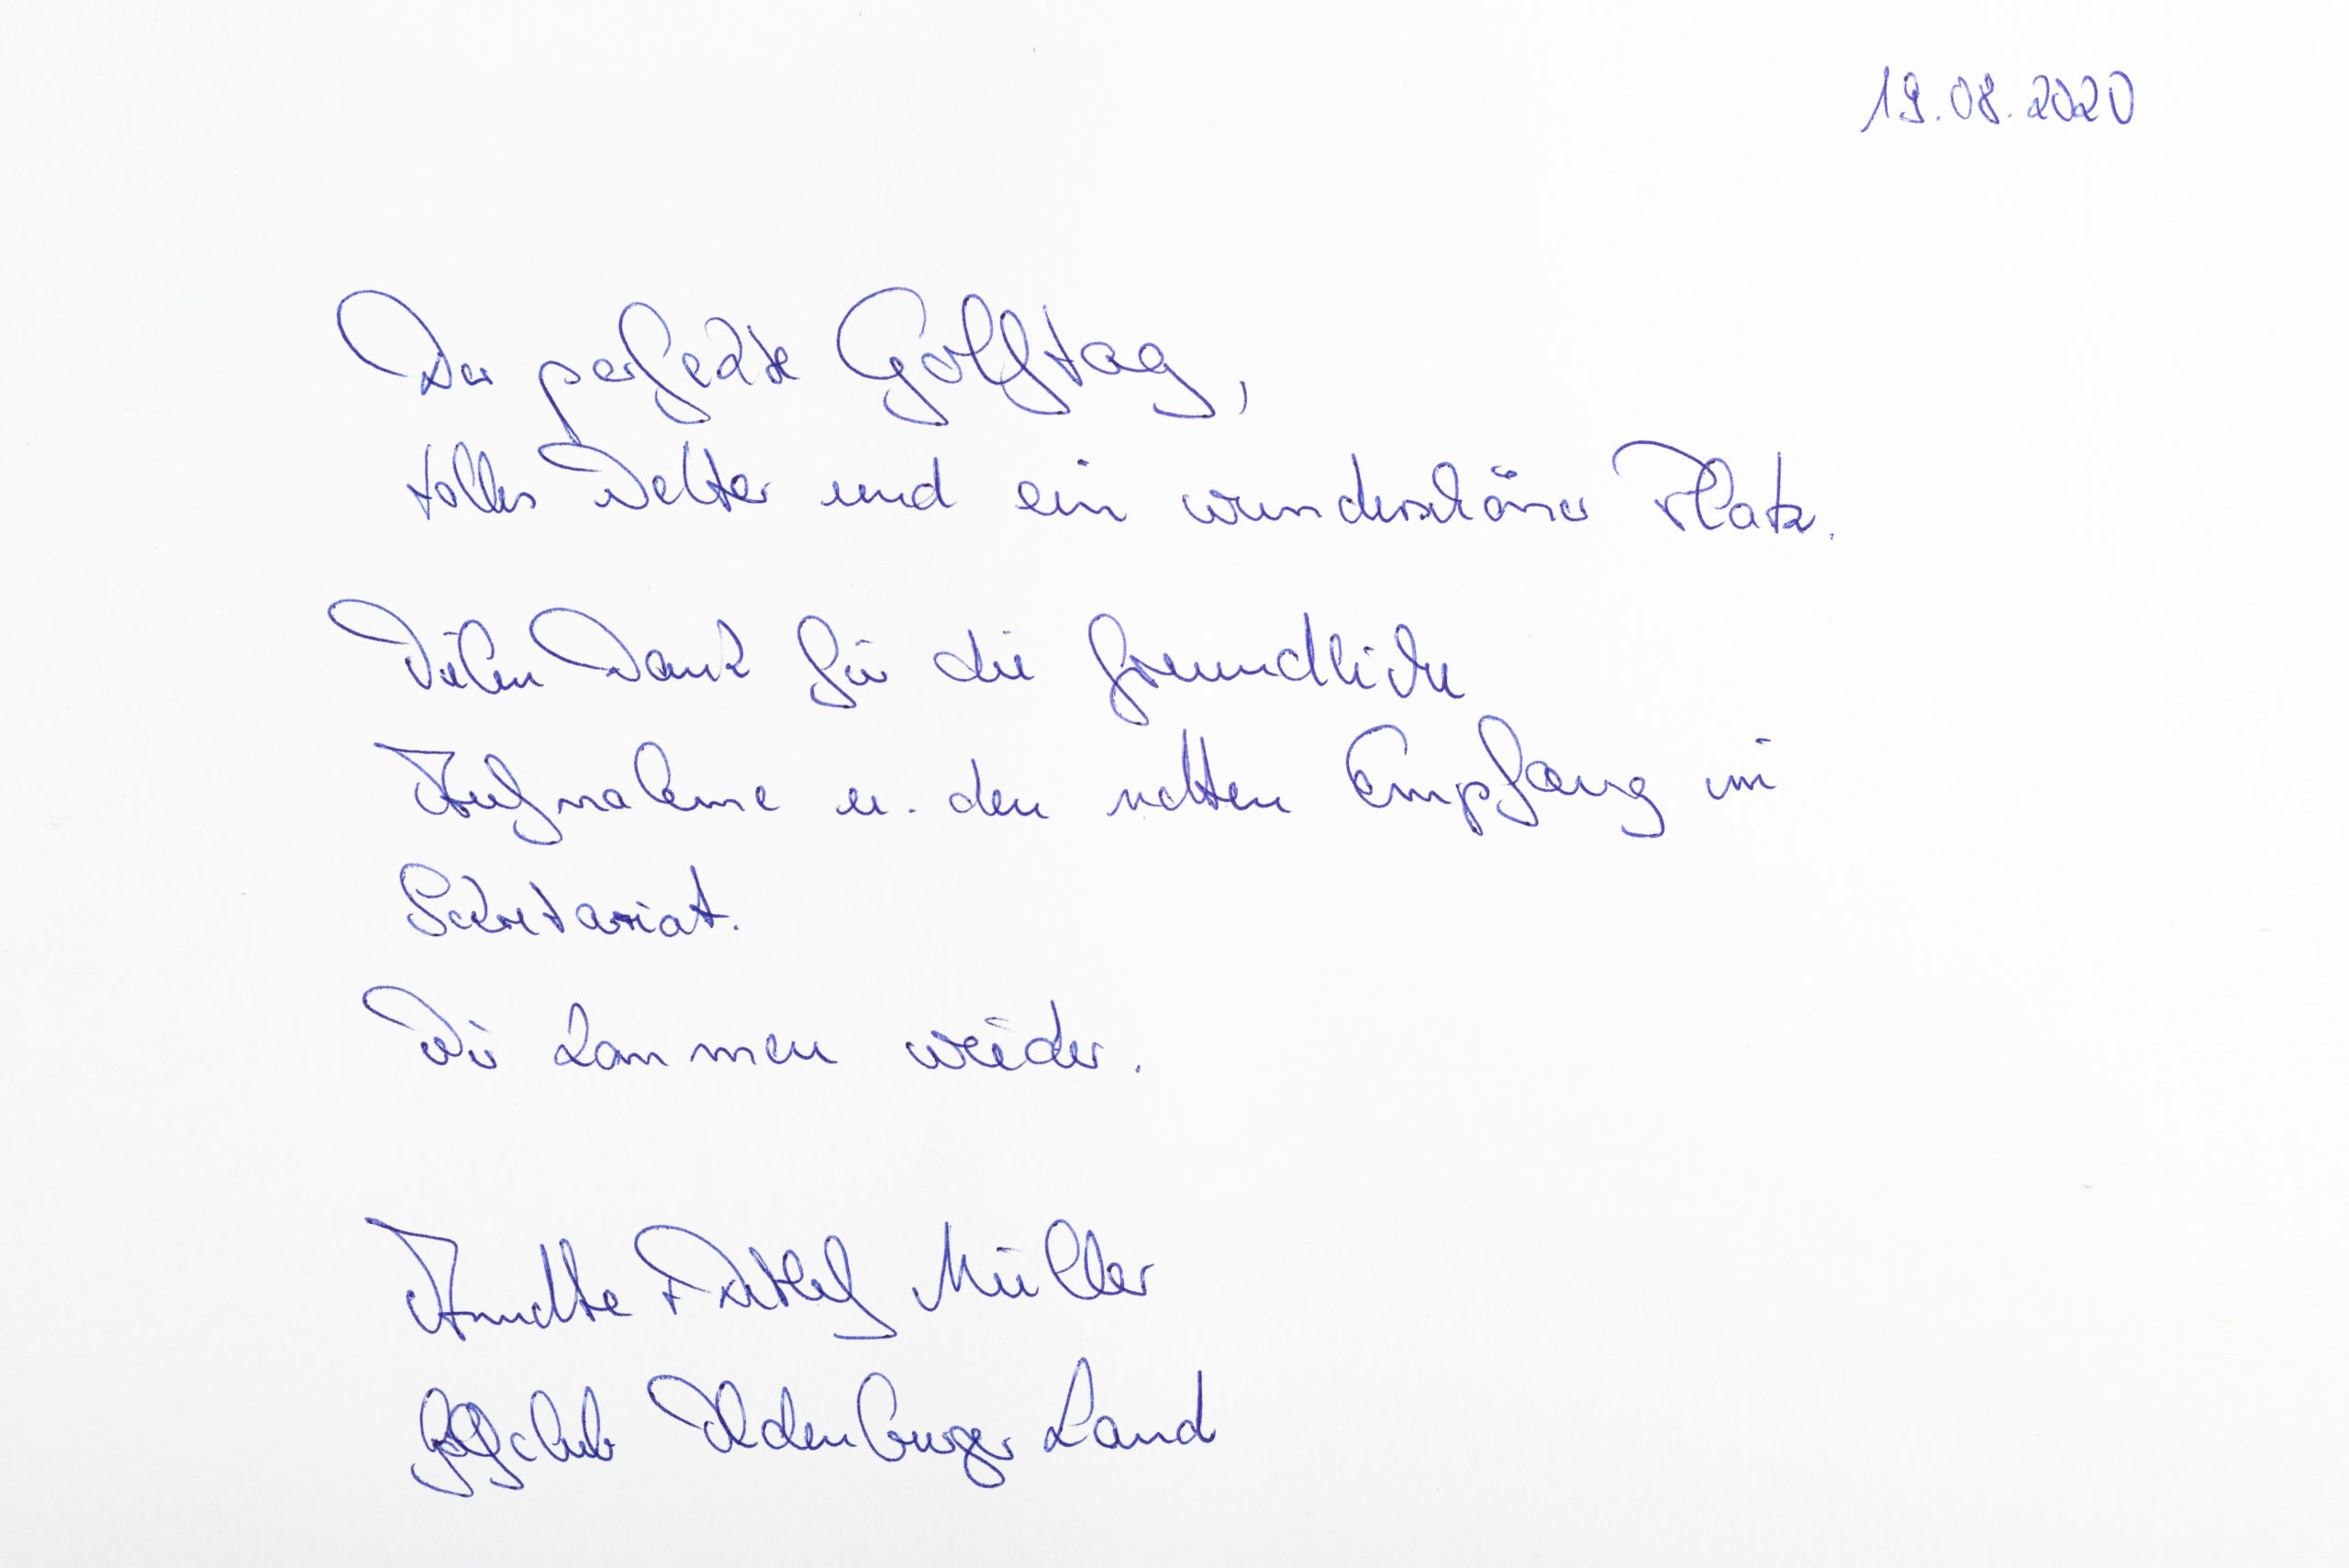 19.08.2020
Der perfekte Golftag,
tolles Wetter und ein wunderschöner Platz.
Vielen Dank für die freundliche
Aufnahme u. den netten Empfang im
Sekretariat.
Wir kommen wieder.
Detlef Müller
Golfclub Oldenburger Land